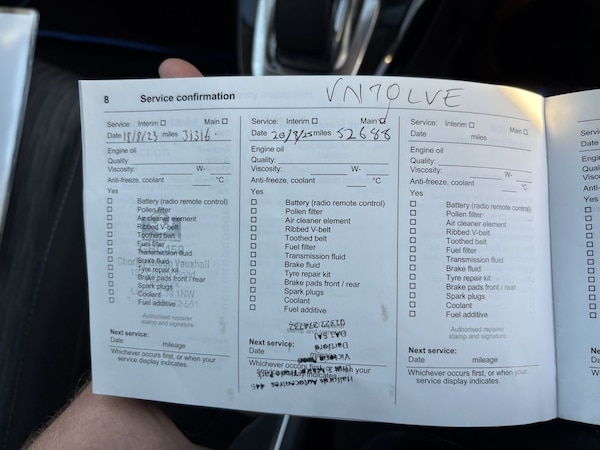 8 Service confirmation
VN70LVE
Service: Interim ☐ Main ☐
Date 18/8/23 miles 31316
Engine oil
Quality:
Viscosity: W-
Anti-freeze, coolant °C
Yes
☐ Battery (radio remote control)
☐ Pollen filter
☐ Air cleaner element
☐ Ribbed V-belt
☐ Toothed belt
☐ Fuel filter
☐ Transmission fluid
☐ Brake fluid
☐ Tyre repair kit
☐ Brake pads front / rear
☐ Spark plugs
☐ Coolant
☐ Fuel additive
Authorised repairer
stamp and signature
Next service:
Date mileage
Whichever occurs first, or when your
service display indicates.
Service: Interim ☐ Main
Date 20/3/25 miles 52688
Engine oil
Quality:
Viscosity: W-
Anti-freeze, coolant °C
Yes
☐ Battery (radio remote control)
☐ Pollen filter
☐ Air cleaner element
☐ Ribbed V-belt
☐ Toothed belt
☐ Fuel filter
☐ Transmission fluid
☐ Brake fluid
☐ Tyre repair kit
☐ Brake pads front / rear
☐ Spark plugs
☐ Coolant
☐ Fuel additive
stamp and signature
Next service:
Date mileage
Whichever occurs first, or when your
service display indicates.
Service: Interim ☐ Main ☐
Date miles
Engine oil
Quality:
Viscosity: W-
Anti-freeze, coolant °C
Yes
☐ Battery (radio remote control)
☐ Pollen filter
☐ Air cleaner element
☐ Ribbed V-belt
☐ Toothed belt
☐ Fuel filter
☐ Transmission fluid
☐ Brake fluid
☐ Tyre repair kit
☐ Brake pads front / rear
☐ Spark plugs
☐ Coolant
☐ Fuel additive
Authorised repairer
stamp and signature
Next service:
Date mileage
Whichever occurs first, or when your
service display indicates.
Service:
Date
Engine oil
Yes